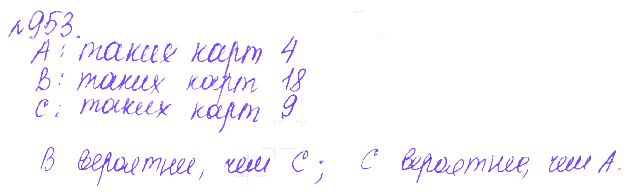 №953.
A: таких карт 4
B: таких карт 18
C: таких карт 9
B вероятнее, чем C; C вероятнее, чем A.